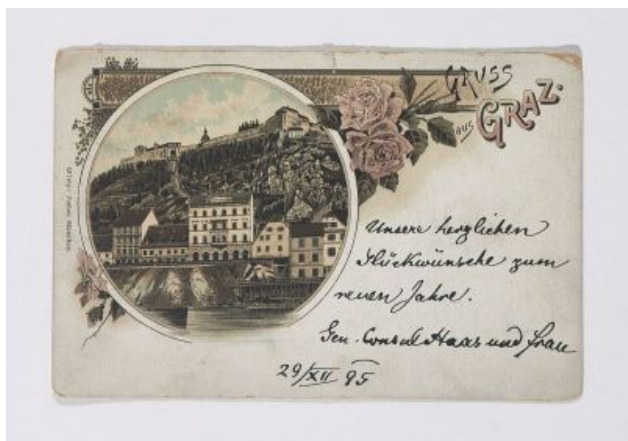 GRUSS
aus GRAZ.
Unsere herzlichen
Glückwünsche zum
neuen Jahre.
Gen. Consul Haas und Frau
29/XII 95